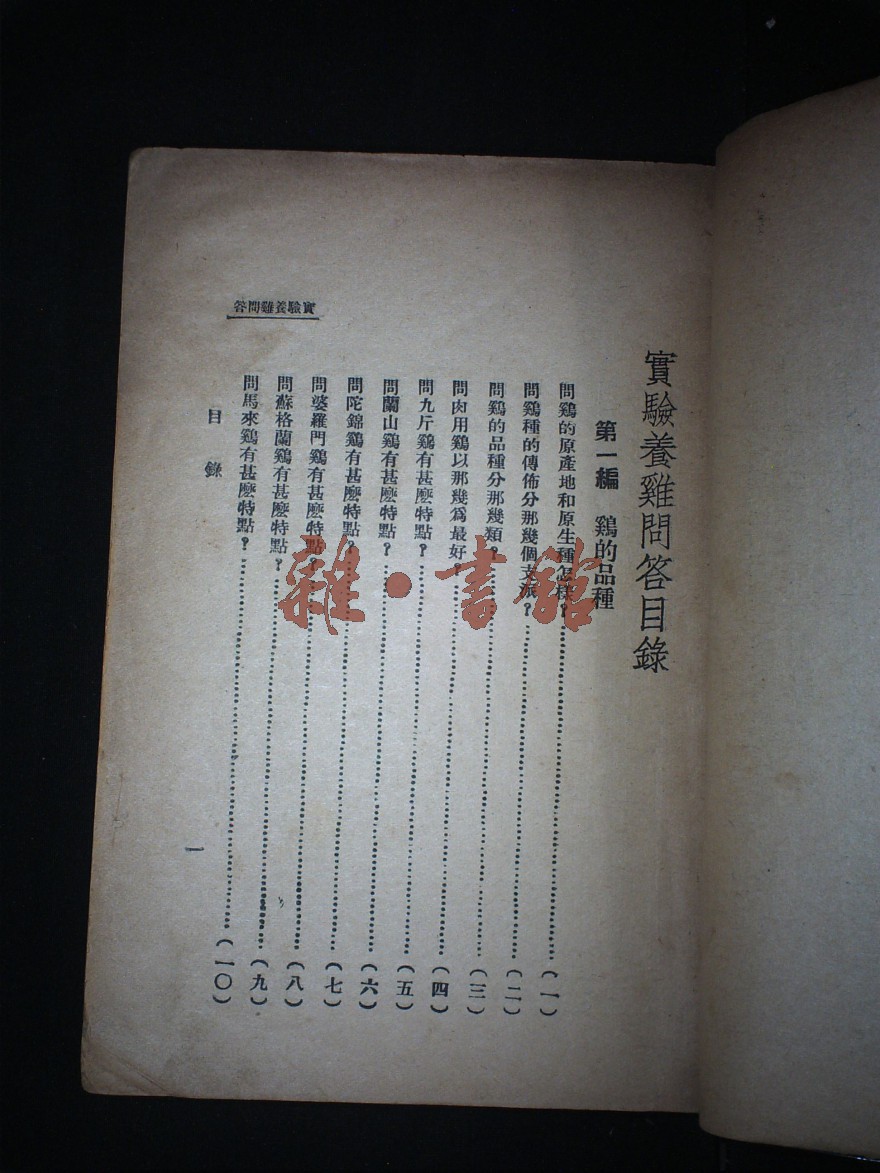 實驗養雞問答目錄
第一編　鷄的品種
問鷄的原產地和原生種怎樣？……（一）
問鷄種的傳佈分那幾個支派？……（二）
問鷄的品種分那幾類？……（三）
問肉用鷄以那幾爲最好？……（四）
問九斤鷄有甚麽特點？……（五）
問蘭山鷄有甚麽特點？……（六）
問陀錦鷄有甚麽特點？……（七）
問婆羅門鷄有甚麽特點？……（八）
問蘇格蘭鷄有甚麽特點？……（九）
問馬來鷄有甚麽特點？……（一〇）
實驗養雞問答
目錄
一
雜·書館